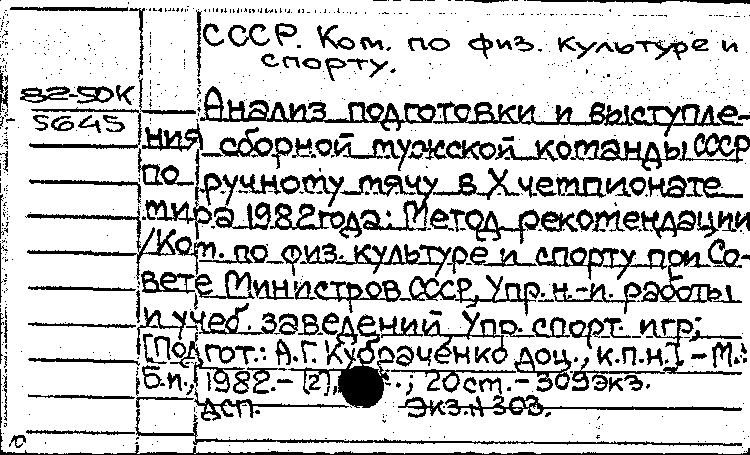 СССР. Ком. по физ. культуре и
спорту.
82-50К
5645
Анализ подготовки и выступле-
ния сборной мужской команды СССР
по ручному мячу в X чемпионате
мира 1982 года: Метод. рекомендации
/Ком. по физ. культуре и спорту при Со-
вете Министров СССР, Упр. н.-и. работы
и учеб. заведений Упр. спорт. игр;
[Подгот.: А.Г. Кубраченко доц., к.п.н.]. - М.:
Б.и., 1982. - [2], .; 20 см. - 309 экз.
Экз. N 303.
10